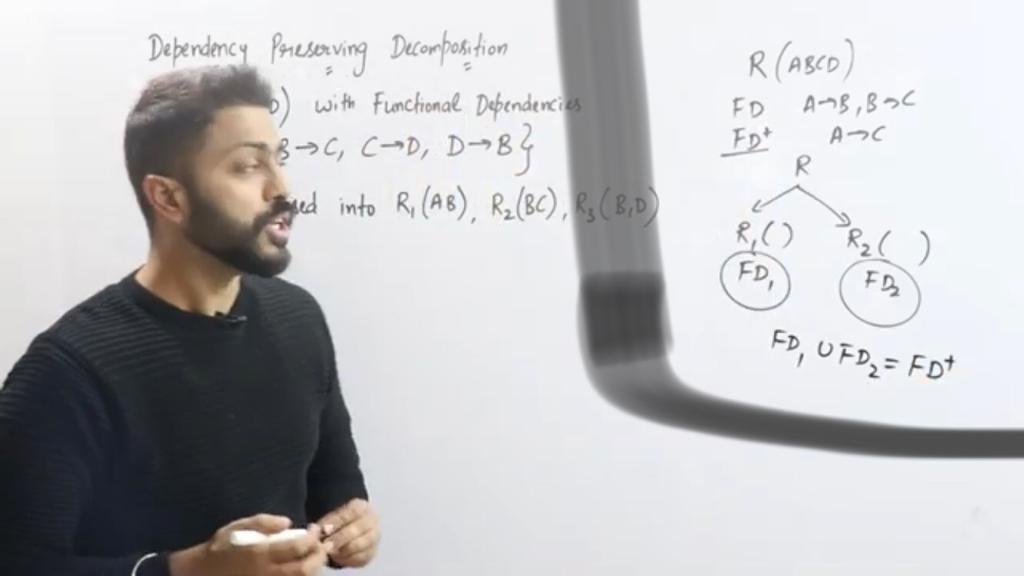 Dependency Preserving Decomposition
D) with Functional Dependencies
B→C, C→D, D→B}
sed into R₁(AB), R₂(BC), R₃(B,D)
R(ABCD)
FD A→B, B→C
FD⁺ A→C
R
R₁( ) R₂( )
FD₁ FD₂
FD₁ ∪ FD₂ = FD⁺